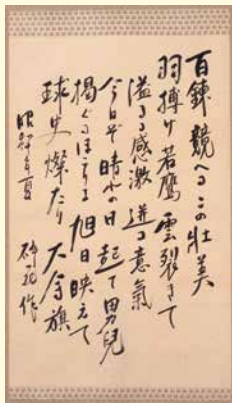 百錬競へるこの壮美
羽搏け若鷹雲裂きて
溢るる感激迸る意氣
今日ぞ晴れの日起て男兒
掲ぐるほまれ旭日映えて
球史燦たり大會旗
昭和
作